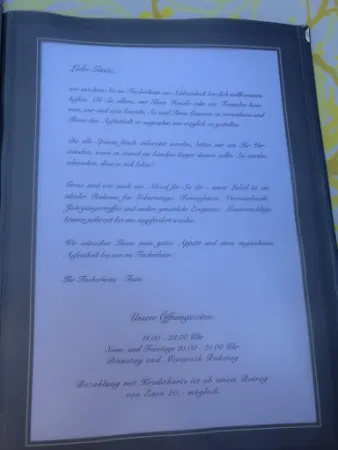 Liebe Gäste,
wir möchten Sie im Fischerheim am Schlosssteich herzlich willkommen
heißen. Ob Sie alleine, mit Ihrer Familie oder mit Freunden kom-
men, wir sind stets bemüht, Sie und Ihren Gaumen zu verwöhnen und
Ihnen den Aufenthalt so angenehm wie möglich zu gestalten.
Da alle Speisen frisch zubereitet werden, bitten wir um Ihr Ver-
ständnis, wenn es einmal ein bisschen länger dauern sollte. Sie werden
schmecken, dass es sich lohnt!
Gerne sind wir auch am Abend für Sie da - unser Lokal ist ein
idealer Rahmen für Geburtstags-, Firmenfeiern, Vereinsabende,
Jahrgangstreffen und andere gemütliche Ereignisse. Menüvorschläge
können jederzeit bei uns angefordert werden.
Wir wünschen Ihnen einen guten Appetit und einen angenehmen
Aufenthalt bei uns im Fischerheim!
Ihr Fischerheim - Team
Unsere Öffnungszeiten:
11.00 - 22.00 Uhr
Sonn- und Feiertags 10.00 - 21.00 Uhr
Dienstag und Mittwoch Ruhetag
Bezahlung mit Kreditkarte ist ab einem Betrag
von Euro 20,- möglich.